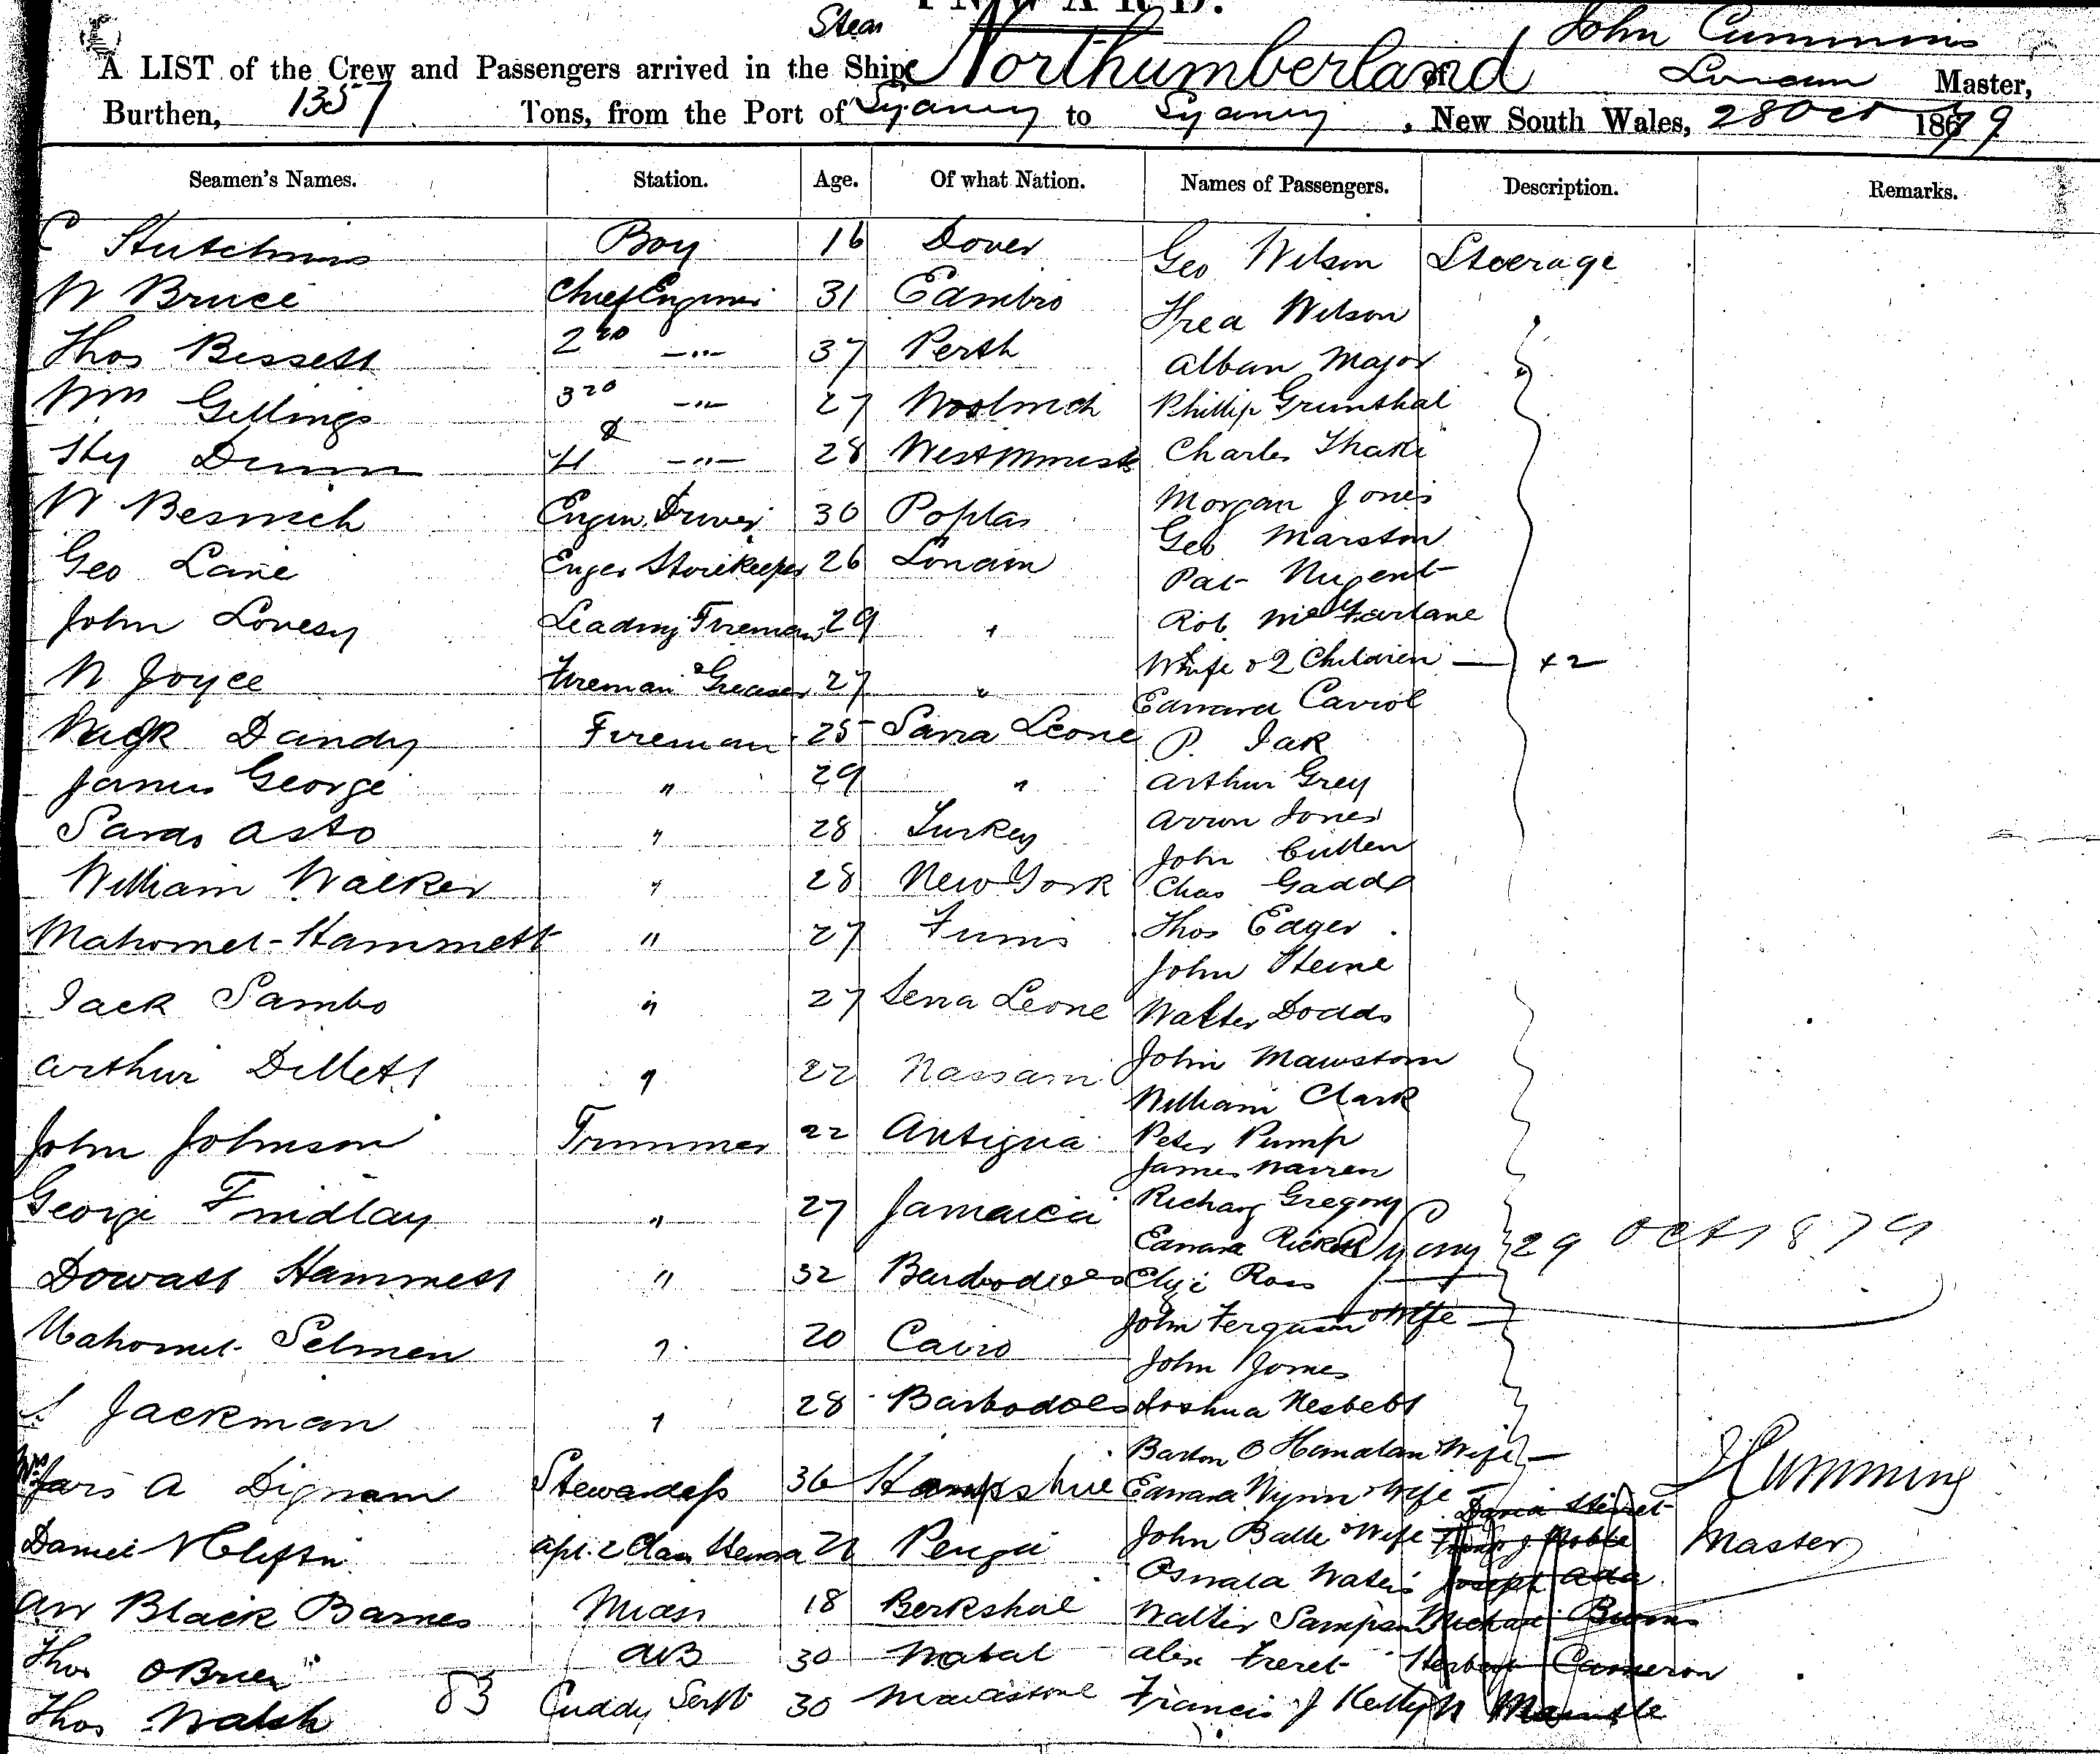 INWARD.
Steam
John Cumming
A LIST of the Crew and Passengers arrived in the Ship Northumberland of London Master,
Burthen, 1357 Tons, from the Port of Sydney to Sydney, New South Wales, 28 Oct 1879
Seamen's Names. Station. Age. Of what Nation. Names of Passengers. Description. Remarks.
C Hutchins Boy 16 Dover Geo Wilson Steerage
W Bruce Chief Engineer 31 Edinbro Wilson
Thos Bissett 2nd -"- 37 Perth Alban Major
Wm Gillings 3rd -"- 27 Woolwich Phillip Grunthal
Hy Dunn 4 -"- 28 Westminster Charles
W Engin Driver 30 Poplar Morgan Jones
Geo Lane Enger Storekeeper 26 London Geo Marston
Pat Nugent
John Lovesy Leading Fireman 29 " Rob McFarlane
W Joyce Fireman & Greaser 27 " Wife & 2 Children — + 2
Edward Carrol
Dandy Fireman 25 Sarra Leone P. Jak
James George " 29 " Arthur Grey
Asto " 28 Turkey Jones
John Cullen
William Walker " 28 New York Chas Gadd
Mahomet Hammett " 27 Tunis Thos Edger
John
Jack Sambo " 27 Serra Leone Walter Dodds
Arthur Dillett " 22 Nassau John Mawstom
William Clark
John Johnson Trimmer 22 Antigua Peter Pump
James Warren
George Findlay " 27 Jamaica Richard Gregory
Edward Sydney 29 Oct 1879
Hammett " 32 Barbadoes Ross
John Ferguson & Wife —
Mahomet Selmen " 20 Cairo John Jones
S Jackman " 28 Barbadoes Joshua Nesbett
Wife —
Mrs A Dignam Stewardess 36 Hampshire Edward Wynn & Wife — J Cumming
Daniel Clifton 21 John Balle & Wife — Noble Master
Oswald Waters Joseph
Black Barnes 18 Berkshire Walter Sampson Michael Burns
Thos OBrien AB 30 Natal Alex Herbert Cameron
Thos Walsh 83 Cuddy Servt 30 Maidstone Francis J Kelly